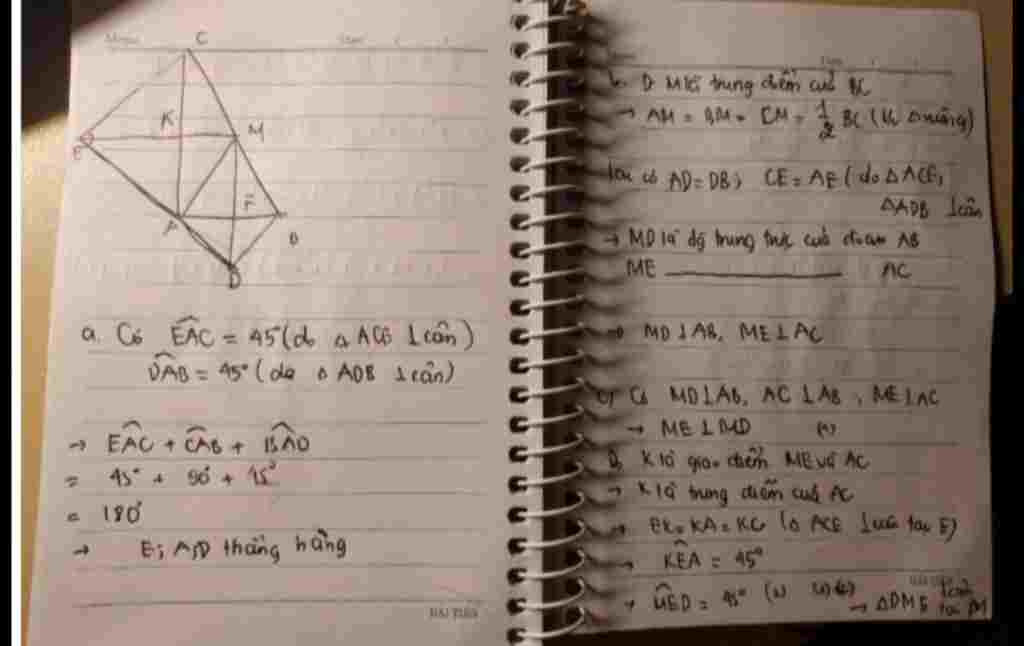 C
K
M
E
F
A
B
D
a. Có EAC = 45° (do Δ ACE ⊥ cân)
DAB = 45° (do Δ ADB ⊥ cân)
→ EAC + CAB + BAD
= 45° + 90° + 45°
= 180°
→ E; A, D thẳng hàng
HẢI TIẾN
b. D. M là trung điểm của BC
→ AM = BM = CM = 1/2 BC (t/c Δ vuông)
lại có AD = DB; CE = AE (do Δ ACE;
ΔADB ⊥ cân
→ MD là đg trung trực của đoạn AB
ME ———————— AC
→ MD ⊥ AB, ME ⊥ AC
c, Có MD ⊥ AB, AC ⊥ AB, ME ⊥ AC
→ ME ⊥ MD (1)
K là giao điểm ME và AC
→ K là trung điểm của AC
→ EK = KA = KC (Δ ACE ⊥ cân tại E)
→ KEA = 45°
HẢI TIẾN
→ MED = 45° (2) → ΔDME ⊥ cân
tại M